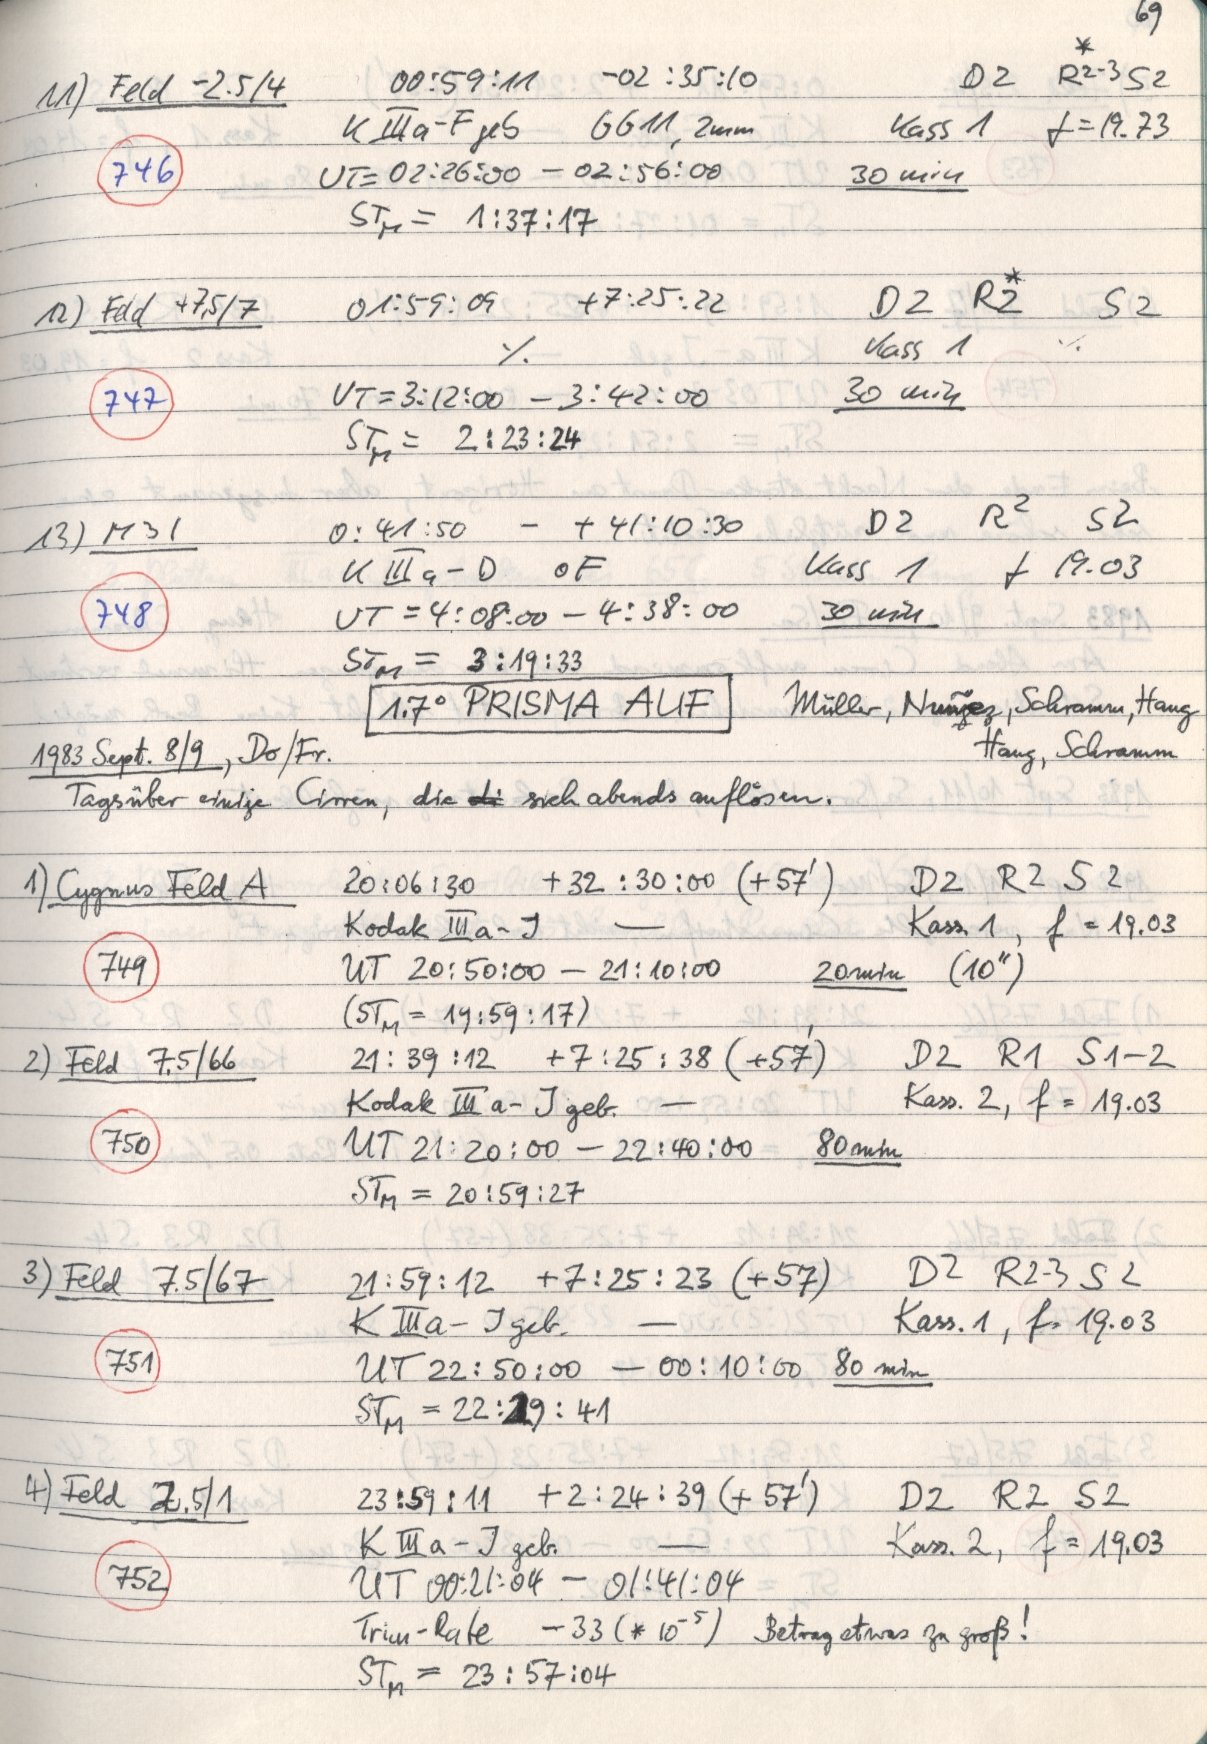 69
11) Feld -2.5/4 00:59:11 -02:35:10 D2 R2-3* S2
K IIIa-F geb GG11, 2mm Kass 1 f=19.73
746 UT= 02:26:00 - 02:56:00 30 min
STM = 1:37:17
12) Feld +7,5/7 01:59:09 +7:25:22 D2 R2* S2
⁒ Kass 1 ⁒
747 UT=3:12:00 - 3:42:00 30 min
STM = 2:23:24
13) M31 0:41:50 - +41:10:30 D2 R2 S2
K IIIa-D oF Kass 1 f 19.03
748 UT = 4:08:00 - 4:38:00 30 min
STM = 3:19:33
1.7° PRISMA AUF Müller, Nuñez, Schramm, Haug
1983 Sept. 8/9, Do/Fr. Haug, Schramm
Tagsüber einige Cirren, die sich abends auflösen.
1) Cygnus Feld A 20:06:30 +32:30:00 (+57') D2 R2 S2
Kodak IIIa-J — Kass. 1, f = 19.03
749 UT 20:50:00 - 21:10:00 20min (10")
(STM = 19:59:17)
2) Feld 7.5/66 21:39:12 +7:25:38 (+57') D2 R1 S1-2
Kodak IIIa-J geb. — Kass. 2, f = 19.03
750 UT 21:20:00 - 22:40:00 80min
STM = 20:59:27
3) Feld 7.5/67 21:59:12 +7:25:23 (+57) D2 R2-3 S2
K IIIa-J geb. — Kass. 1, f= 19.03
751 UT 22:50:00 — 00:10:00 80 min
STM = 22:29:41
4) Feld 2.5/1 23:59:11 +2:24:39 (+57') D2 R2 S2
K IIIa-J geb. — Kass. 2, f = 19.03
752 UT 00:21:04 - 01:41:04
Trim-Rate -33 (* 10-5) Betrag etwas zu groß!
STM = 23:57:04